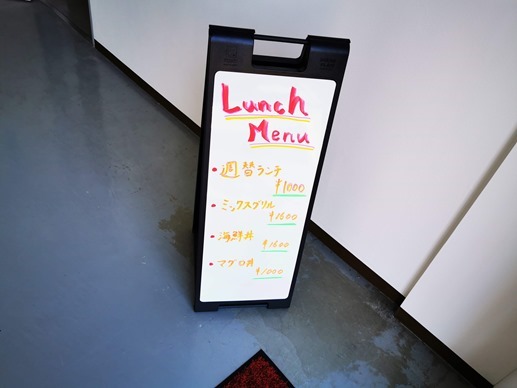 Lunch
Menu
・週替ランチ
¥1000
・ミックスグリル
¥1600
・海鮮丼
¥1600
・マグロ丼
¥1000